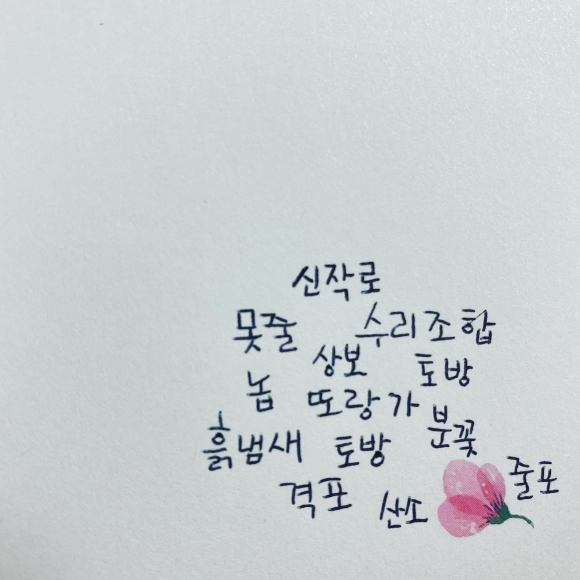 신작로
못줄 수리조합
상보 토방
놉 또랑가
분꽃
흙냄새 토방
줄포
격포 산소